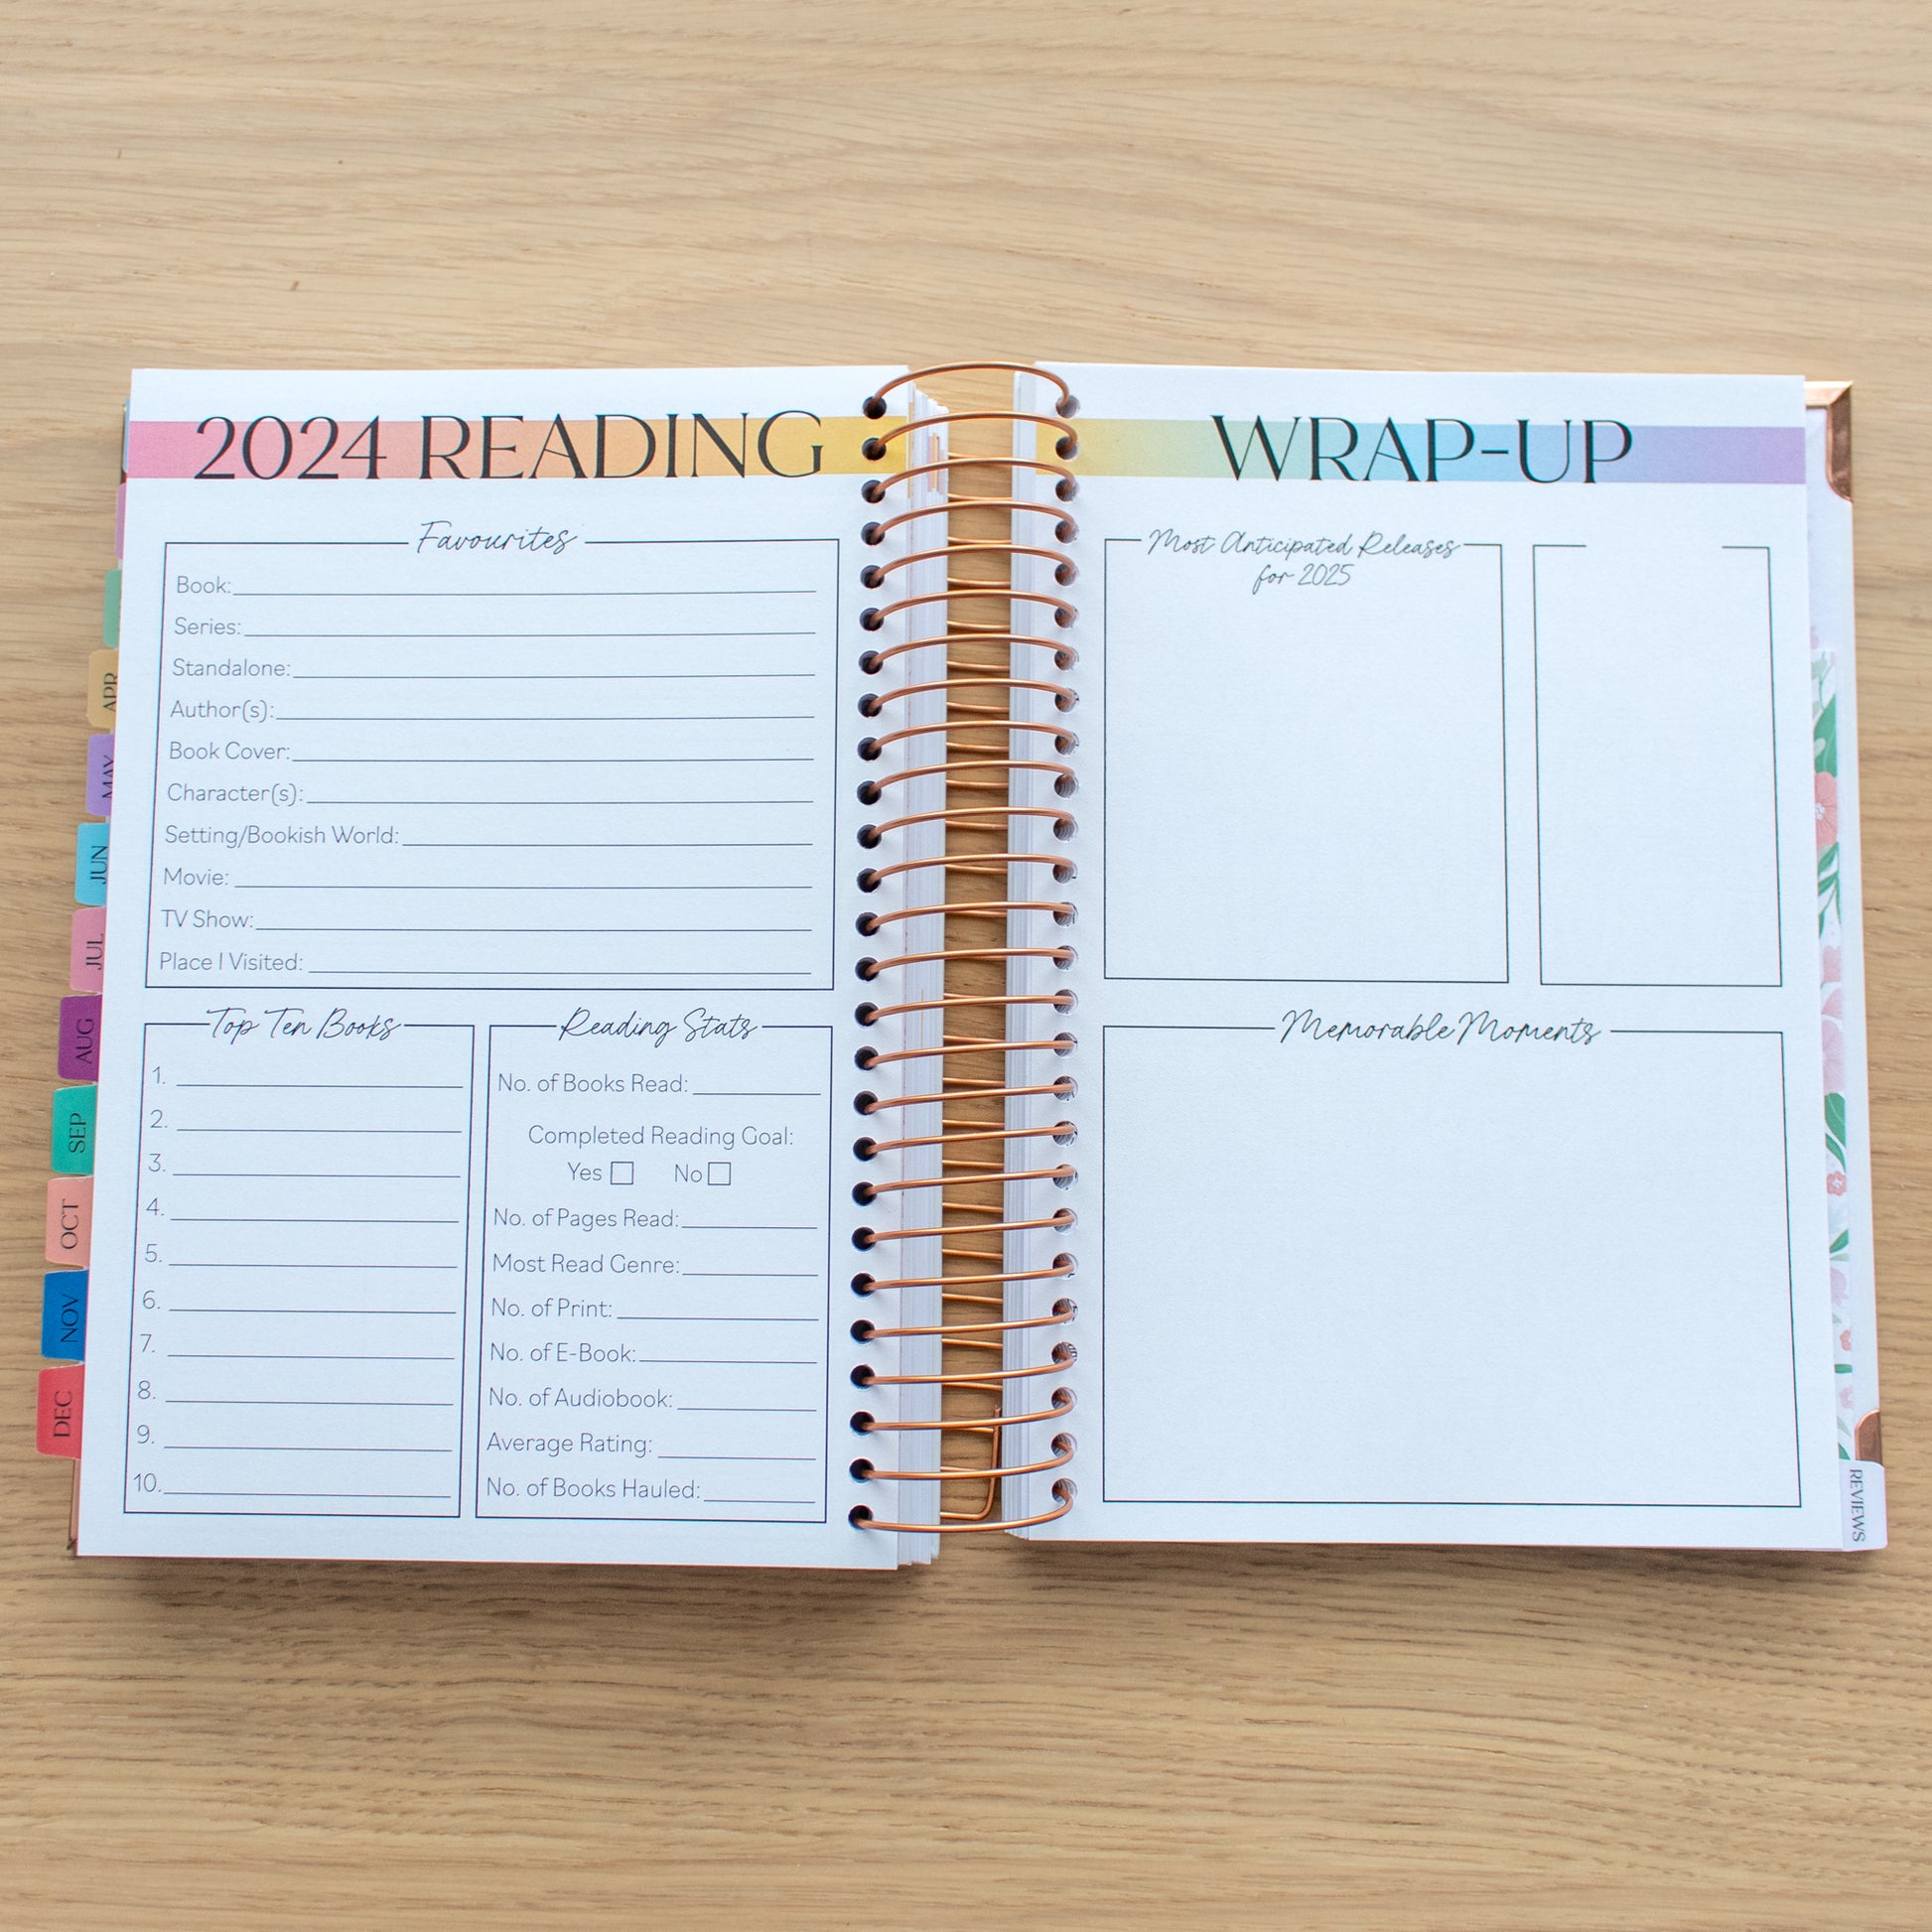 2024 READING
Favourites
Book:
Series:
Standalone:
Author(s):
Book Cover:
Character(s):
Setting/Bookish World:
Movie:
TV Show:
Place I Visited:
Top Ten Books
1.
2.
3.
4.
5.
6.
7.
8.
9.
10.
Reading Stats
No. of Books Read:
Completed Reading Goal:
Yes No
No. of Pages Read:
Most Read Genre:
No. of Print:
No. of E-Book:
No. of Audiobook:
Average Rating:
No. of Books Hauled:
WRAP-UP
Most Anticipated Releases
for 2025
Memorable Moments
APR
MAY
JUN
JUL
AUG
SEP
OCT
NOV
DEC
REVIEWS